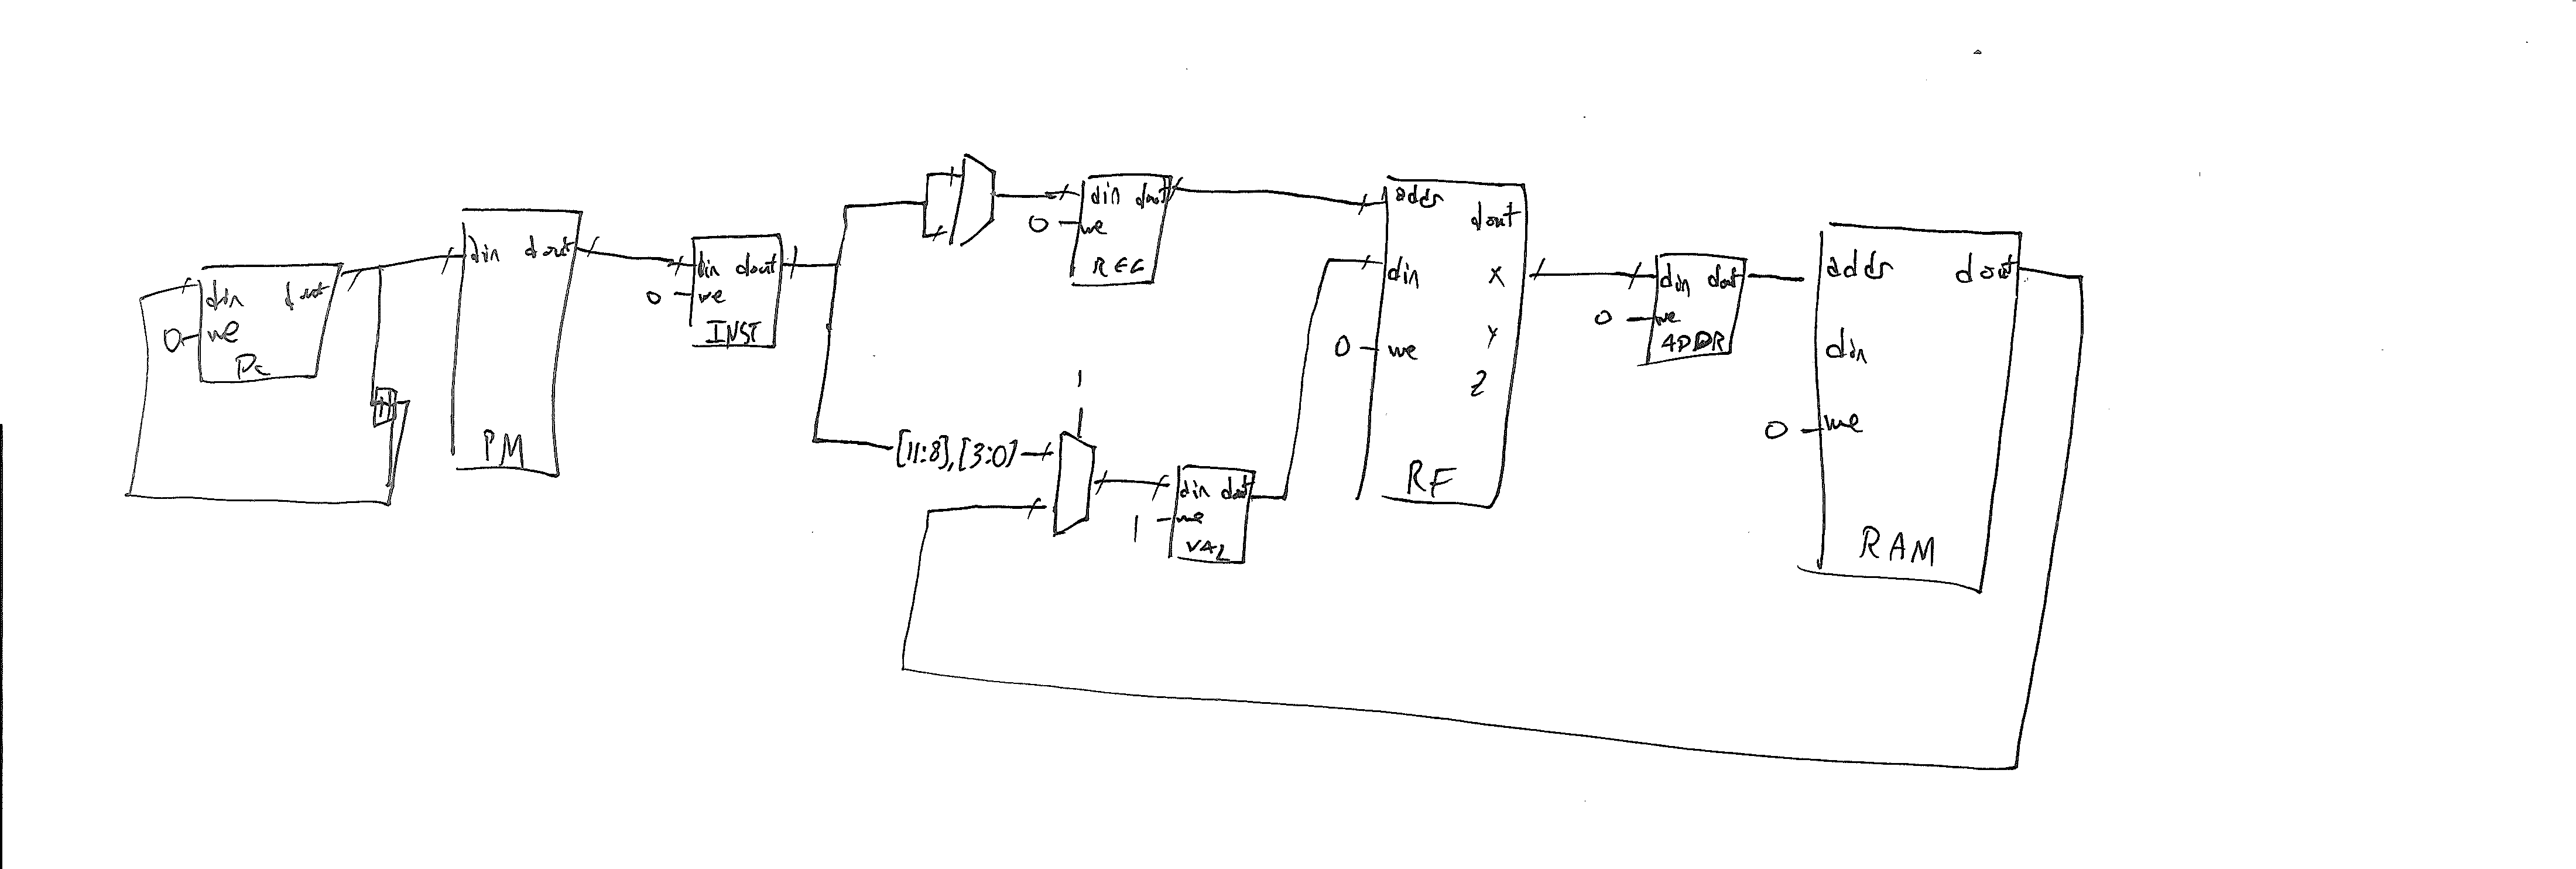 din dout
0 we
PC
din dout
PM
din dout
0 we
INST
din dout
0 we
REG
1
[11:8],[3:0]
din dout
1 we
VAL
addr
dout
din
X
0 we
Y
Z
RF
din dout
0 we
ADDR
addr dout
din
0 we
RAM